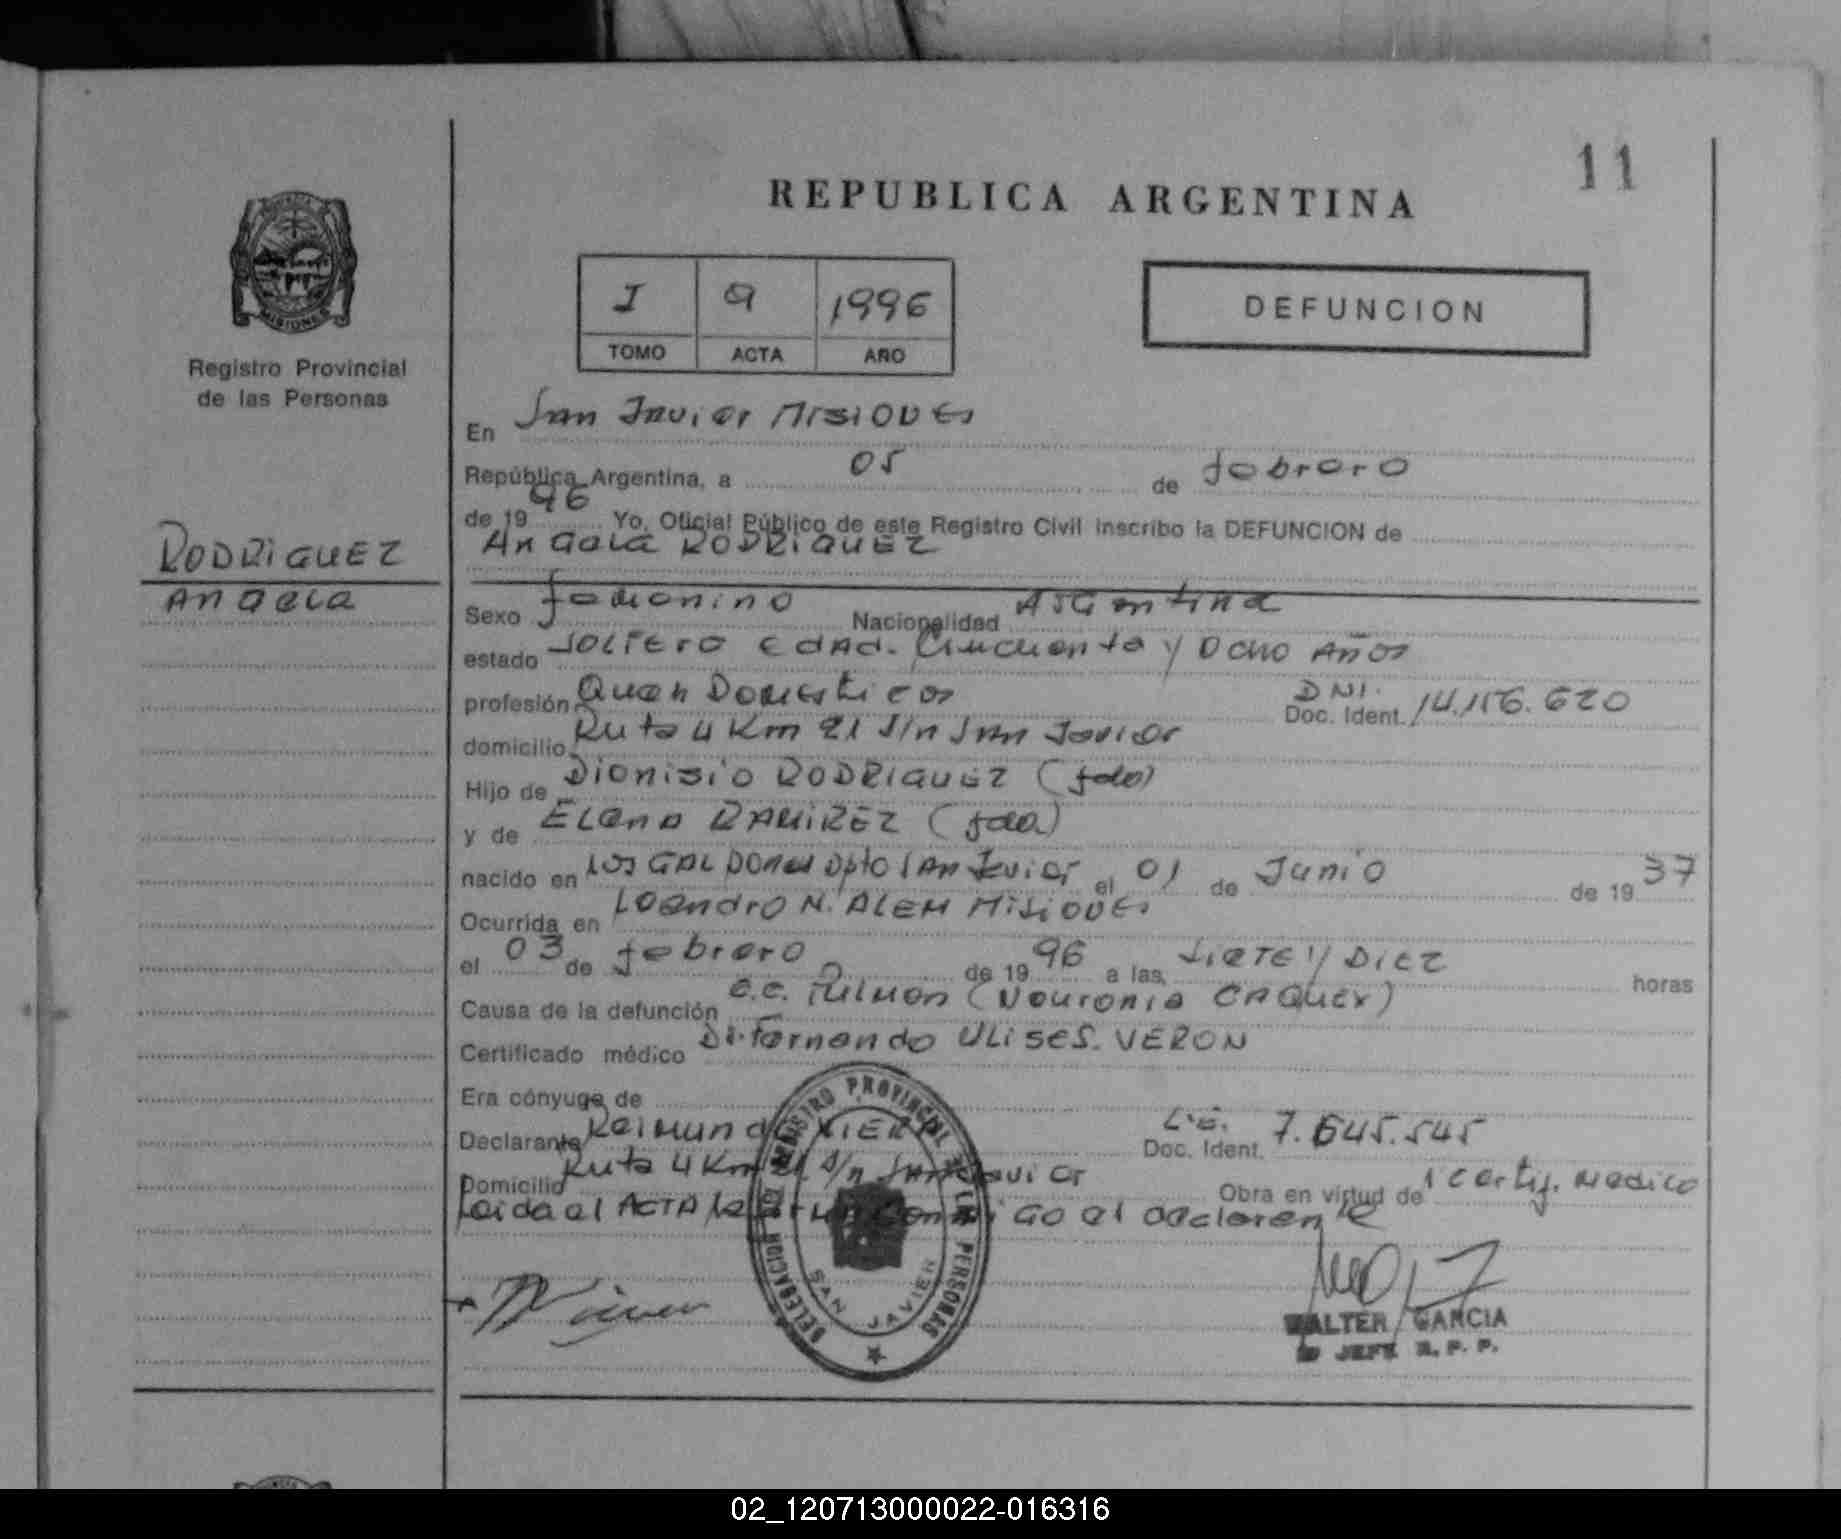 11
REPUBLICA ARGENTINA
MISIONES
Registro Provincial
de las Personas
I 9 1996
TOMO ACTA AÑO
DEFUNCION
RODRIGUEZ
Angela
En San Javier Misiones
República Argentina, a 05 de febrero
de 19 96 Yo, Oficial Público de este Registro Civil inscribo la DEFUNCION de
Angela RODRIGUEZ
Sexo femenino Nacionalidad Argentina
estado soltero edad. Cincuenta y Ocho Años
profesión Quen Domesticos DNI. Doc. Ident. 14.116.620
domicilio Ruta 4 Km 21 S/n San Javier
Hijo de Dionisio RODRIGUEZ (fdo)
y de Elena RAMIREZ (fda)
nacido en Los Galpones Dpto San Javier el 01 de Junio de 19 37
Ocurrida en Leandro N. ALEM Misiones
el 03 de febrero de 19 96 a las, siete y Diez horas
Causa de la defunción C.C. Pulmon (
Certificado médico Dr. Fernando ULISES. VERON
Era cónyuge de
Declarante Raimundo L.E. Doc. Ident. 7.645.545
Domicilio Ruta 4 Km 21 S/n San Javier Obra en virtud de 1 certif. Medico
Leida el ACTA la firma conmigo el declarente
DELEGACION DEL REGISTRO PROVINCIAL DE LAS PERSONAS
SAN JAVIER
WALTER GARCIA
JEFE R. P. P.
02_120713000022-016316